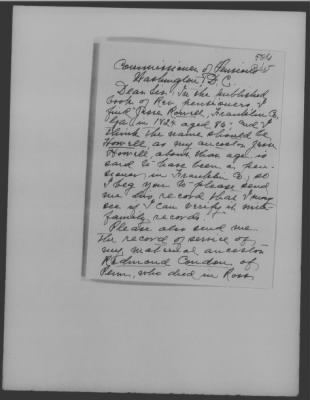 Commissioner of Pensions
Washington, D.C.
Dear Sir: In the published
book of Rev. pensioners, I
find Jesse Rowell, Franklin Co.
Ga. in 1840 aged 86: and I
think the name should be
Howell, as my ancestor Jesse
Howell, about that age is
said to have been a pen-
sioner in Franklin Co, so
I beg you to please send
me his record that I may
see if I can verify it with
family records.
Please also send me
the record of service of
my maternal ancestor
Redmond Condon of
Penn, who died in Ross